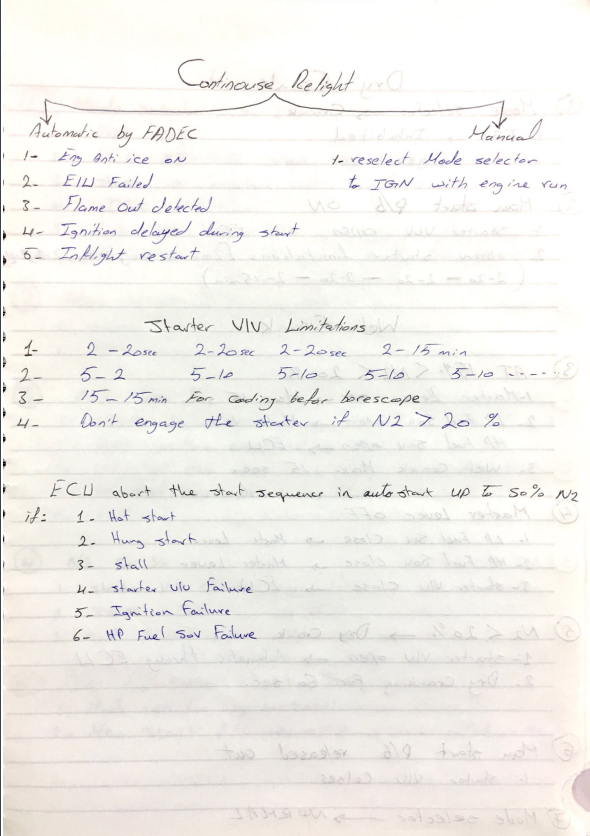 Continouse Relight
Automatic by FADEC
Manual
1- Eng anti ice on
2- EIU Failed
3- Flame out detected
4- Ignition delayed during start
5- Inflight restart
1- reselect Mode selector
to IGN with engine run
Starter Vlv Limitations
1- 2 - 20sec 2-20sec 2-20sec 2-15min
2- 5-2 5-10 5-10 5-10 5-10 ......
3- 15-15min For cooling befor borescope
4- Don't engage the starter if N2 > 20 %
ECU abort the start sequence in autostart UP to 50% N2
if: 1- Hot start
2- Hung start
3- stall
4- starter vlv Failure
5- Ignition Failure
6- HP Fuel Sov Failure